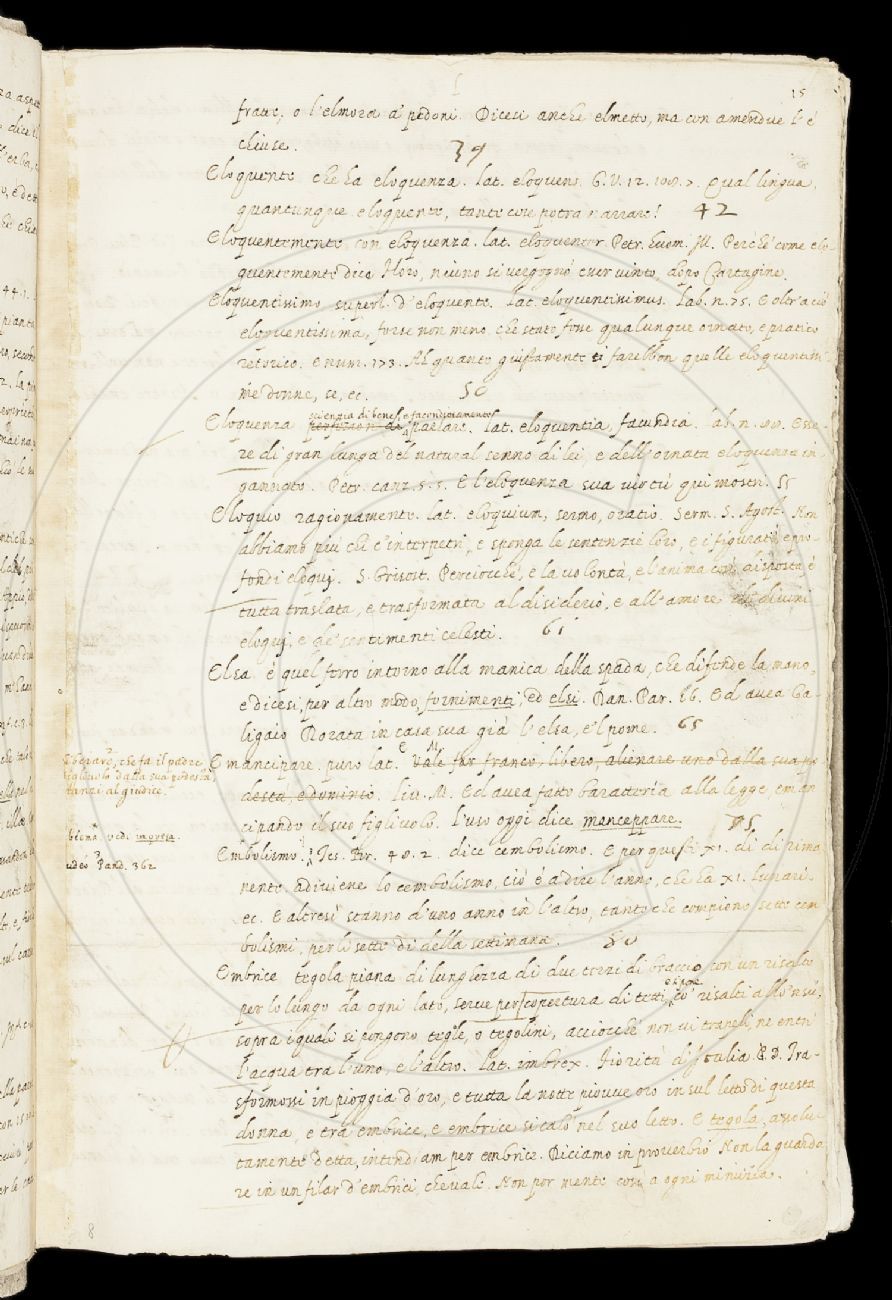 15
frate, o l'elmora a' pedoni. Dicesi anche elmetto, ma con amendue l' é
chiuse.
39
Eloquente che ha eloquenza. lat. eloquens. G. V. 12. 108. 7. Qual lingua,
quantunque eloquente, tante cose potra narrare! 42
Eloquentemente con eloquenza. lat. eloquenter. Petr. huom. Ill. Perché come elo-
quentemente dice Floro, niuno si vergognò esser vinto, dopo Cartagine.
Eloquentissimo superl. d'eloquente. lat. eloquentissimus. lab. n. 75. E oltr a ciò
eloquentissima, forse non meno che stato fosse qualunque ornato, e pratico
retorico. E num. 173. Ah quanto giustamente farebbon quelle eloquentissi-
me donne, ec, ec. 50
scienzia di bene, e facondiosamente
Eloquenza parlare. lat. eloquentia, facundia. lab. n. Esse-
re di gran lunga del natural senno di lei e dell'ornata eloquenza in-
gannato. Petr. canz. 5. 5. E l'eloquenza sua virtù qui mostri. 55
Eloquio ragionamento. lat. eloquium, sermo, oratio. Serm. S. Agost. Non
abbiamo più chi c'interpetri, e sponga le sentenzie loro, e i figurati, e pro-
fondi eloqui. S. Grisost. Perciocché, e la volontà, e l'anima così disposta, é
tutta traslata, e trasformata al disiderio, e all'amore de' divini
eloqui, e de' sentimenti celesti. 61
Elsa é quel ferro intorno alla manica della spada, che difende la mano,
e dicesi, per altro modo, fornimenti, ed elsi. Dan. Par. 16. Ed avea Ga-
ligaio Dorata in casa sua già l'elsa, e 'l pome. 65
che fa il padre
figliuolo dalla sua podestà,
innanzi al giudice.
Emancipare. puro lat. Vale far franco, libero, alienare uno dalla sua po-
destà, e dominio. liv. M. Ed avea fatto baratteria alla legge eman-
cipando il suo figliuolo. l'uso oggi dice manceppare. 75
vedi impresa.
Pand. 362
Embolismo. Tes. Br. 48. 2. dice cembolismo. E per questi XI. dì di rima-
nente adiviene lo cembolismo, ciò é a dire l'anno, che ha XI. lunari.
ec. E altresì stanno d'uno anno in l'altro, tanto che compiono sette cem-
bolismi, per li sette dì della settimana. 80
Embrice tegola piana di lunghezza di due terzi di braccio con un risalto
per lo lungo da ogni lato, serve per copertura di tetti, co' risalti all'nsù,
sopra i quali si pongono tegole, o tegolini, acciocché non vi trapeli, ne entri
l'acqua tra l'uno, e l'altro. lat. imbrex. Fiorità d'Italia P. D. Tra-
sformossi in pioggia d'oro, e tutta la notte piovve oro in sul letto di questa
donna, e tra embrice, e embrice si calò nel suo letto. E tegola, assolu-
tamente detta, intendiam per embrice. Diciamo in proverbio Non la guarda-
re in un filar d'embrici, che vale. Non por mente così a ogni minuzia.
8